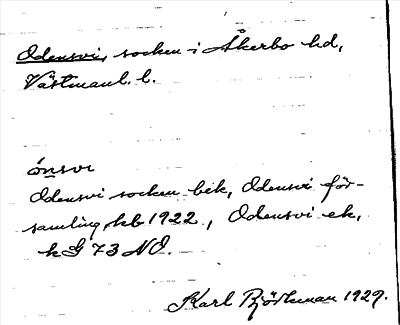 Odensvi, socken i Åkerbo hd,
Västmanl. l.
ónsvi
Odensvi socken bek, Odensvi för-
samling, kb 1922, Odensvi ek,
kG 73 NO.
Karl 1929.